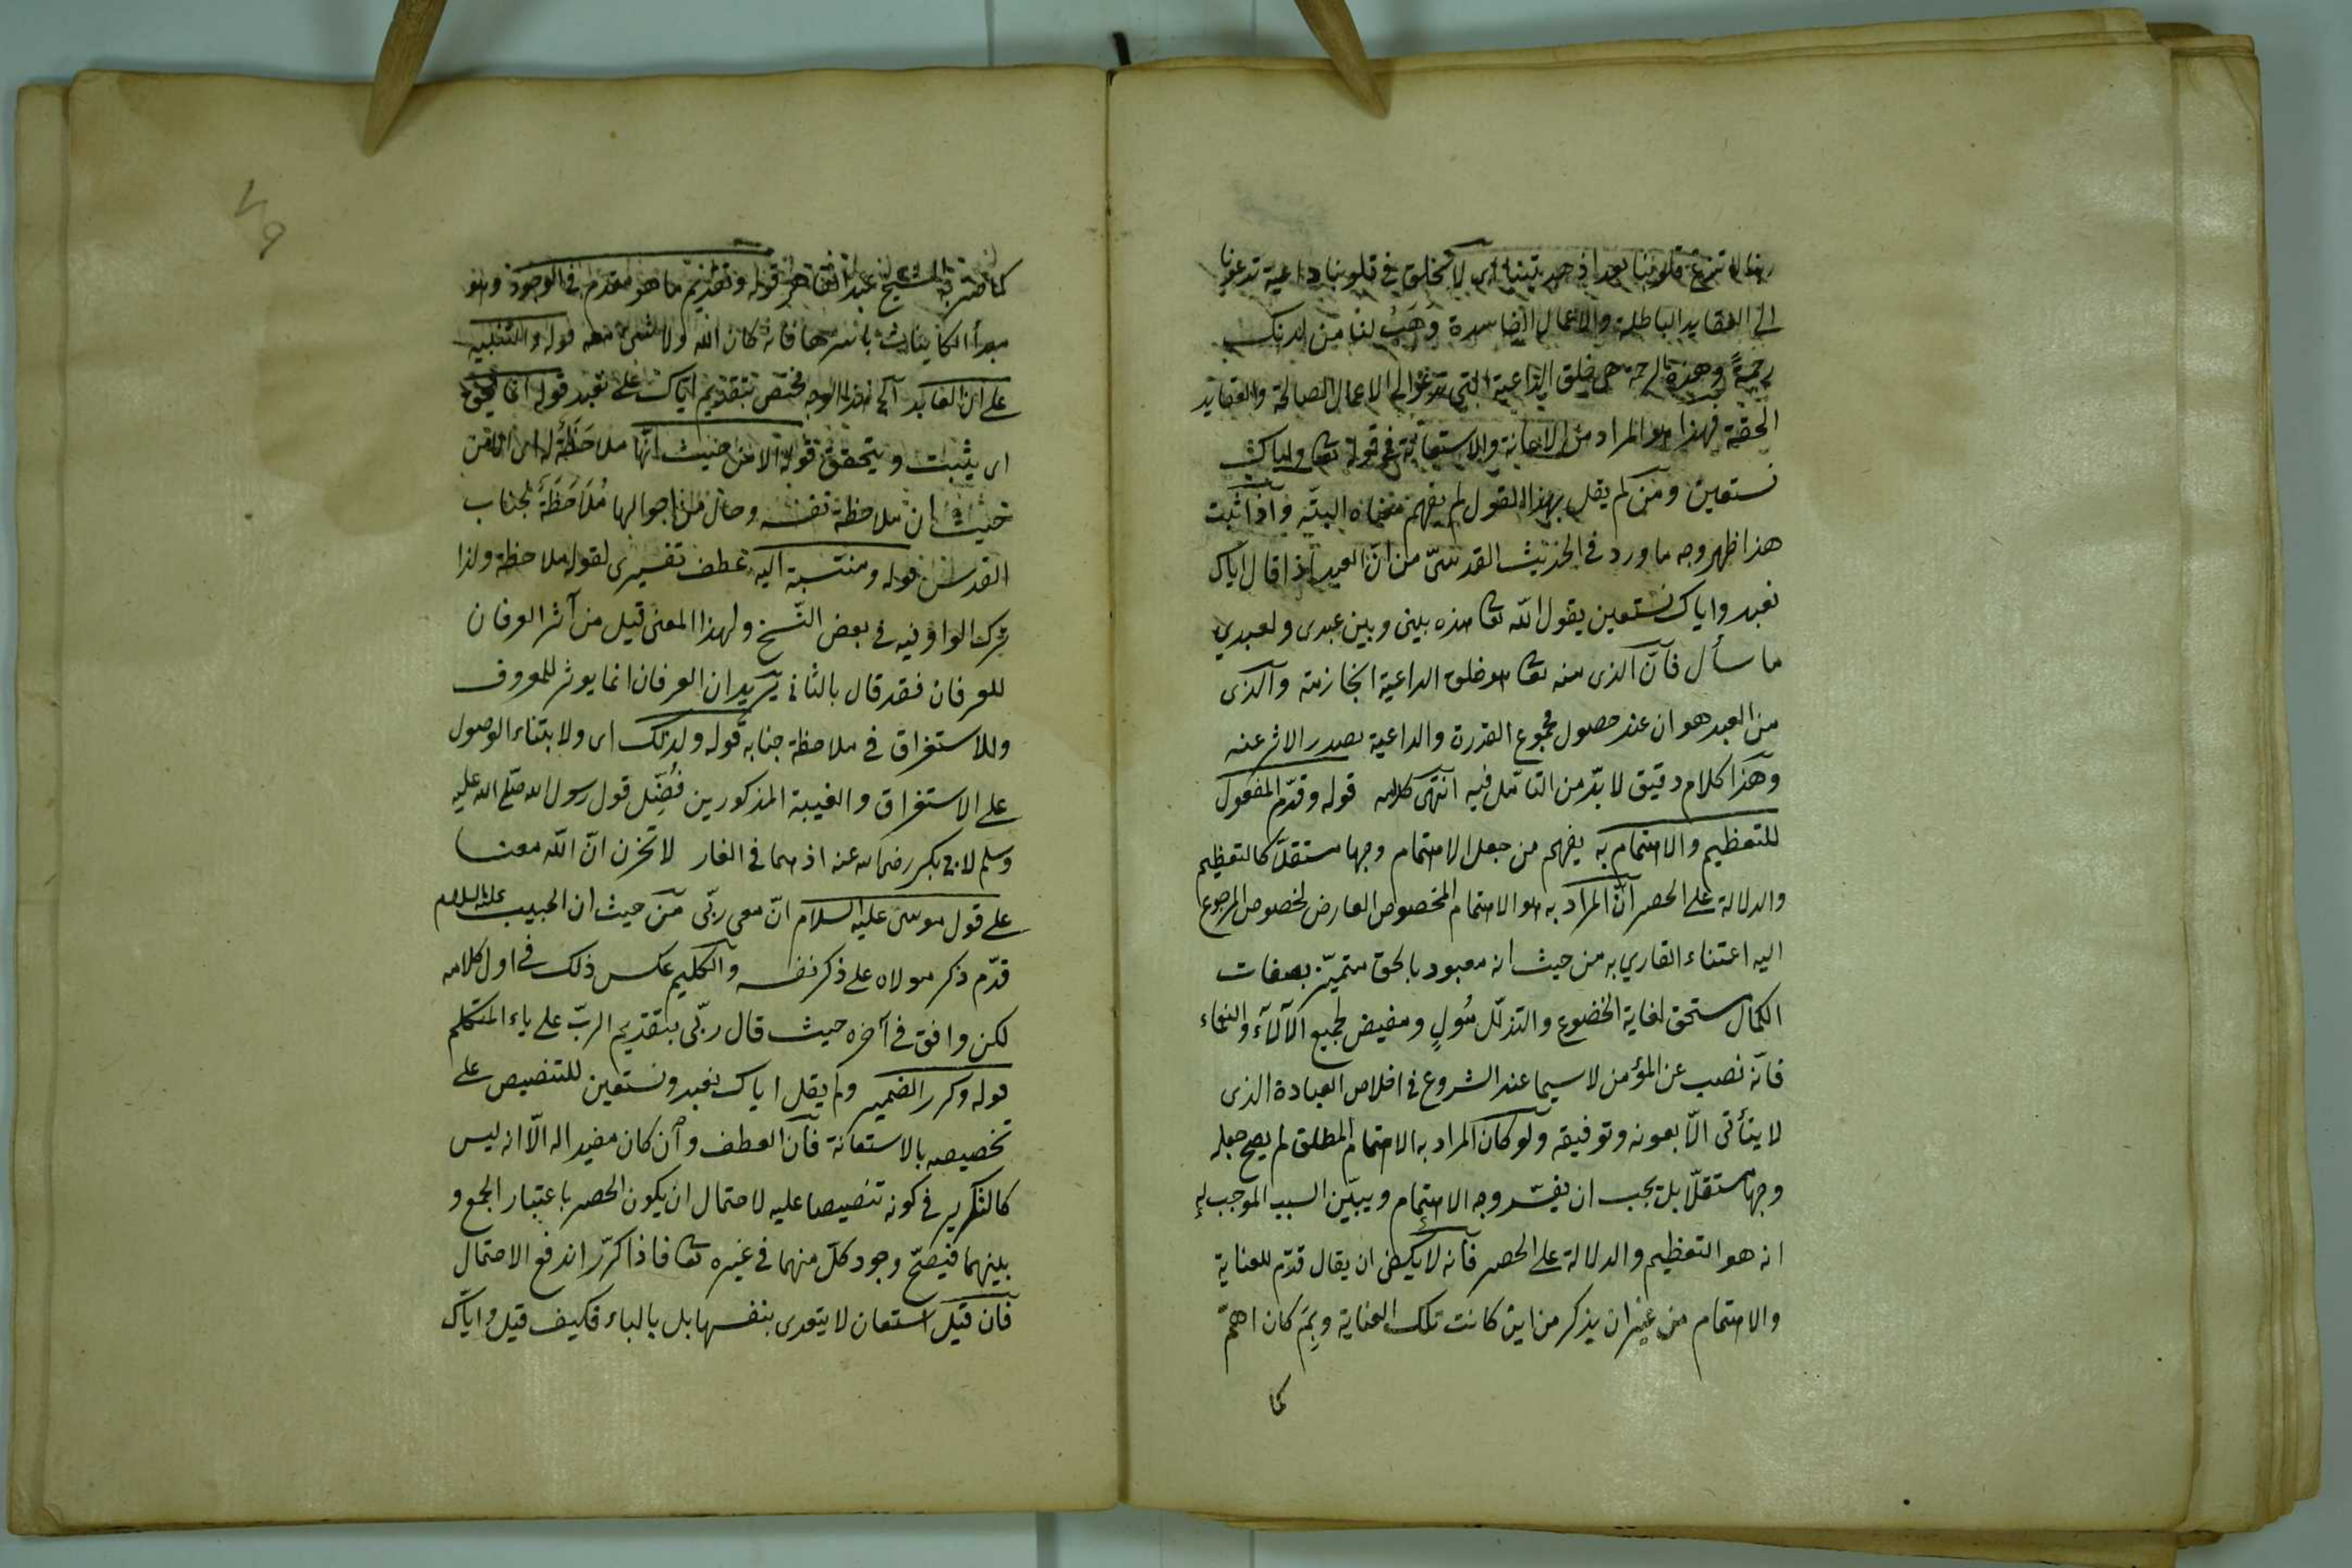 ربنا لا تزغ قلوبنا بعد اذ هديتنا اى لا تخلق فى قلوبنا داعية تدعونا
الى العقايد الباطلة والاعمال الفاسدة وَهَبْ لنا من لدنك
رحمةً وهذه الرحمة هى خلق الداعية التى تدعو الى الاعمال الصالحة والعقايد
الحقية فهذا هو المراد من الاعانة والاستعانة فى قوله تعا واياك
نستعين ومن لم يقل بهذا القول لم يفهم معناه البتّه واذا ثبت
هذا ظهر وجه ما ورد فى الحديث القدسىّ من انّ العبد اذا قال اياك
نعبد واياك نستعين يقول الله تعا هذه بينى وبين عبدى ولعبدي
ما سأل فانّ الذى منه تعا هو خلق الداعية الجازمة والذى
من العبد هو ان عند حصول مجموع القدرة والداعية يصدر الاثر عنه
وهذا كلام دقيق لا بدّ من التأمّل فيه انتهى كلامه قوله وقدّم المفعول
للتعظيم والاهتمام به يفهم من جعل الاهتمام وجها مستقلّا كالتعظيم
والدلالة على الحصر انّ المراد به هو الاهتمام المخصوص العارض لخصوص المرجوع
اليه اعتناء القاري به من حيث انه معبود بالحق متميّز بصفات
الكمال مستحق لغاية الخضوع والتذلّل مُولٍ ومفيض لجميع الآلآء والنعماء
فانّه نصب عن المؤمن لا سيما عند الشروع فى اخلاص العبادة الذى
لا يتأتى الّا بعونه وتوفيقه ولو كان المراد به الاهتمام المطلق لم يصح جعله
وجها مستقلّا بل يجب ان يفسّر وجه الاهتمام ويبيّن السبب الموجب له
انه هو التعظيم والدلالة على الحصر فانه لا يكفى ان يقال قدّم للعناية
والاهتمام من غير ان يذكر من اين كانت تلك العناية وبِمَ كان اهمّ
كما
٧٩
كما صرّح به الشيخ عبد القاهر قوله وتقديم ما هو مقدم فى الوجود وهو
مبدأ الكاينات باسرها فانه كان الله ولا شئ معه قوله والتنبيه
على ان العابد آلخ هذا الوجه مختص بتقديم اياك على نعبد قوله انما يحق
اى يثبت ويتحقق قوله الا من حيث انّها ملاحَظَةٌ له اى الا من
حيث ان ملاحظة نفسه وحال من احوالها مُلَاحَظَةٌ لجناب
القدس قوله ومنتسبة اليه عطف تفسيرى لقوله ملاحظة ولذا
ترك الواو فيه فى بعض النّسخ ولهذا المعنى قيل من آثر العرفان
للعرفان فقد قال بالثانى يريد ان العرفان انما يوثر للمعروف
وللاستغراق فى ملاحظة جنابه قوله ولذلك اى ولابتناء الوصول
على الاستغراق والغيبة المذكورين فُضِّل قول رسول الله صلّى الله عليه
وسلم لابى بكر رضى الله عنه اذ هما فى الغار لا تحزن انّ الله معنا
على قول موسى عليه السلام انّ معى ربّى من حيث ان الحبيب عليه السلام
قدّم ذكر مولاه على ذكر نفسه والكليم عكس ذلك فى اول كلامه
لكن وافق فى آخره حيث قال ربّى بتقديم الربّ على ياء المتكلم
قوله وكرر الضمير ولم يقل اياك نعبد ونستعين للتنصيص على
تخصيصه بالاستعانة فانّ العطف وان كان مفيدا له الّا انه ليس
كالتكرير فى كونه تنصيصا عليه لاحتمال ان يكون الحصر باعتبار الجمع و
بينهما فيصحّ وجود كلّ منهما فى غيره تعا فاذا كرّر اندفع الاحتمال
فان قيل استعان لا يتعدى بنفسها بل بالباء فكيف قيل واياك